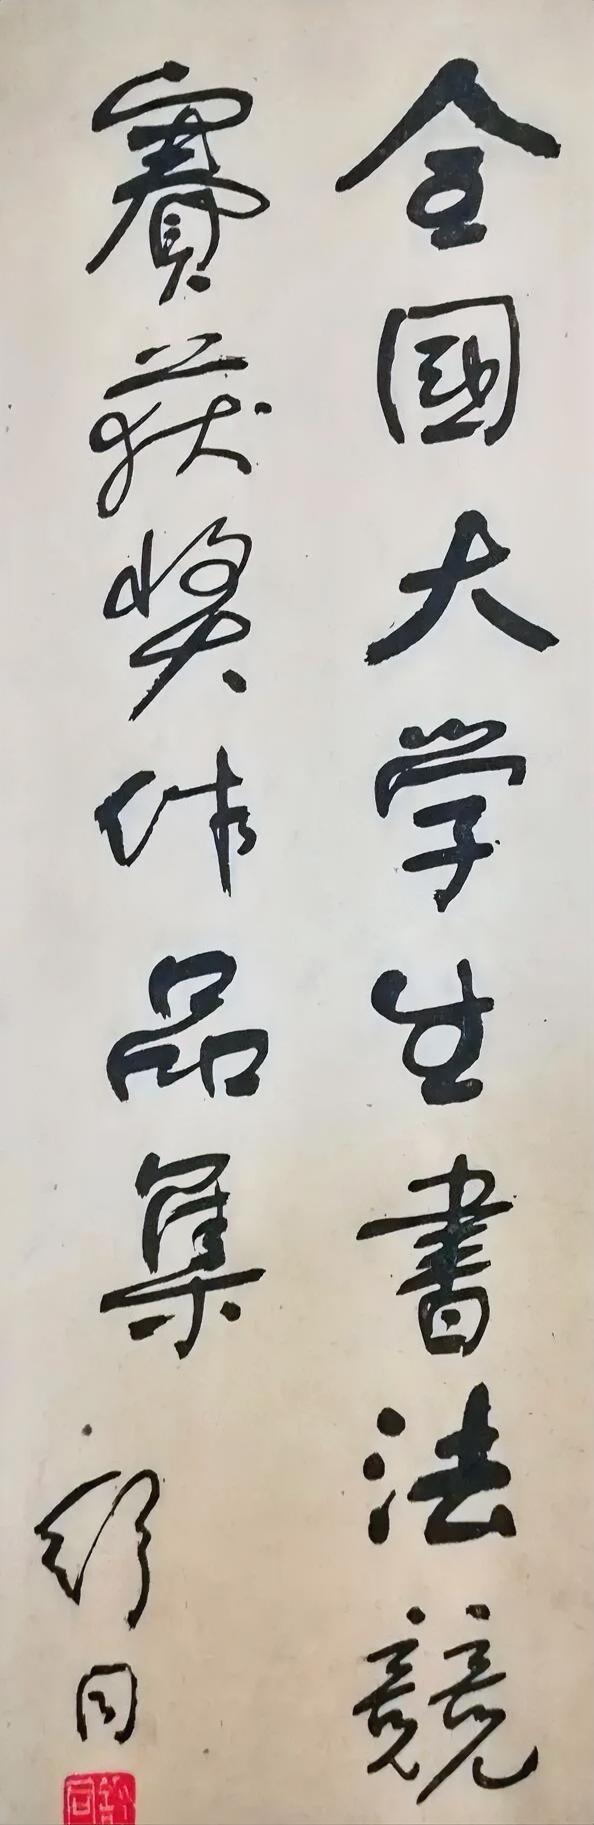 全國大学生書法競
賽获奖作品集
舒同
舒同